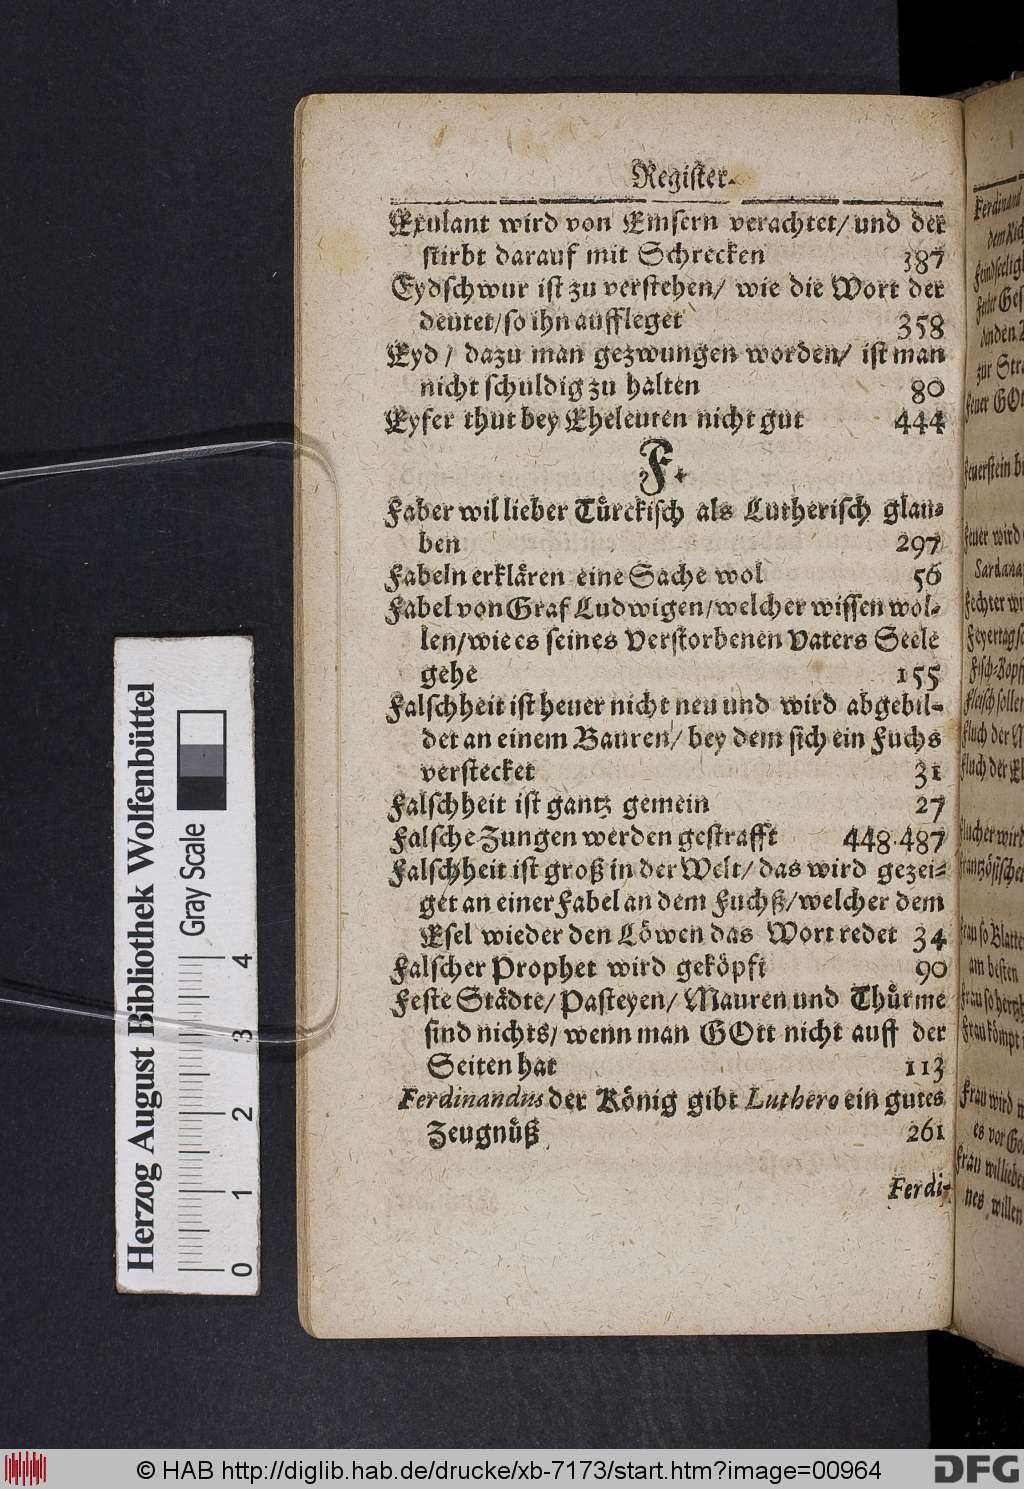 Register.
Exulant wird von Emsern verachtet/ und der
stirbt darauf mit Schrecken 387
Eydschwur ist zu verstehen/ wie die Wort der
deutet/so ihn auffleget 358
Eyd / dazu man gezwungen worden/ ist man
nicht schuldig zu halten 80
Eyfer thut bey Eheleuten nicht gut 444
F.
Faber wil lieber Türckisch als Lutherisch glau-
ben 297
Fabeln erklären eine Sache wol 56
Fabel von Graf Ludwigen/welcher wissen wol-
len/wie es seines verstorbenen Vaters Seele
gehe 155
Falschheit ist heuer nicht neu und wird abgebil-
det an einem Bauren/ bey dem sich ein Fuchs
verstecket 31
Falschheit ist gantz gemein 27
Falsche Zungen werden gestrafft 448.487
Falschheit ist groß in der Welt/ das wird gezei-
get an einer Fabel an dem Fuchß/welcher dem
Esel wieder den Löwen das Wort redet 34
Falscher Prophet wird geköpft 90
Feste Städte/ Pasteyen/ Mauren und Thürme
sind nichts/ wenn man GOtt nicht auff der
Seiten hat 113
Ferdinandus der König gibt Luthero ein gutes
Zeugnüß 261
Ferdi-
Ferdinand
Feuerstein
Feuer wird
Fechter
Fluch der
Fluch der
Flucher wird
Frau so
am besten
Frau so
Frau kömpt
Frau wird
es vor
Frau wil
nes willen
Herzog August Bibliothek Wolfenbüttel
Gray Scale
0 1 2 3 4
© HAB http://diglib.hab.de/drucke/xb-7173/start.htm?image=00964
DFG